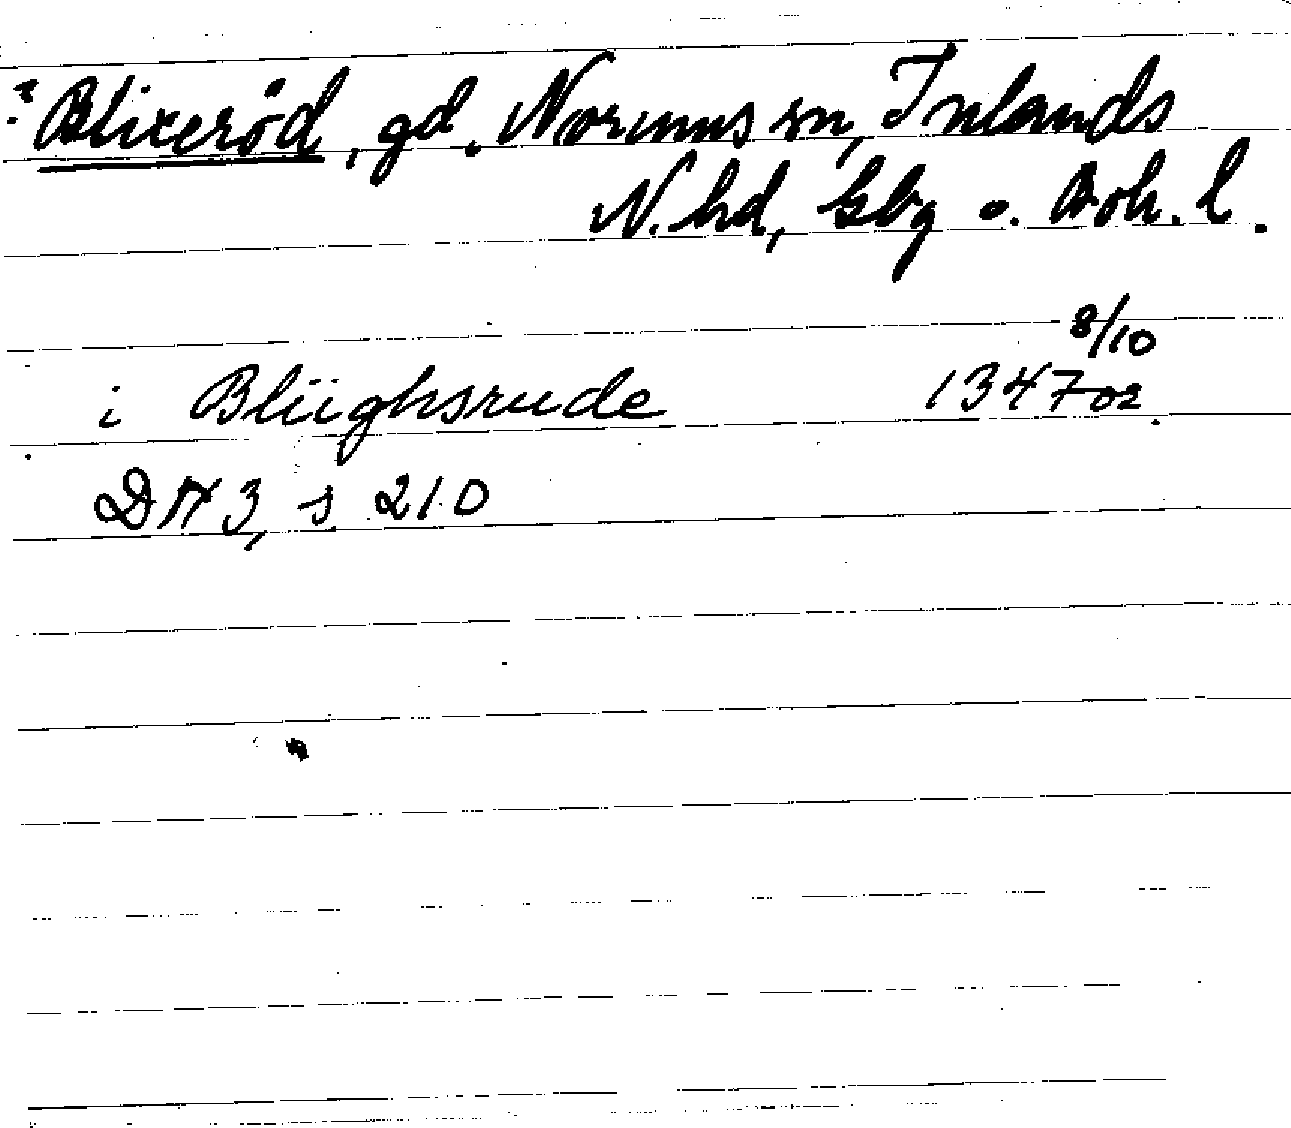 ? Blixeröd, gd. Norums sn, Inlands
N. hd, Gbg o. Boh. l.
8/10
i Blüghsrude 1347 or
DN 3, s 210